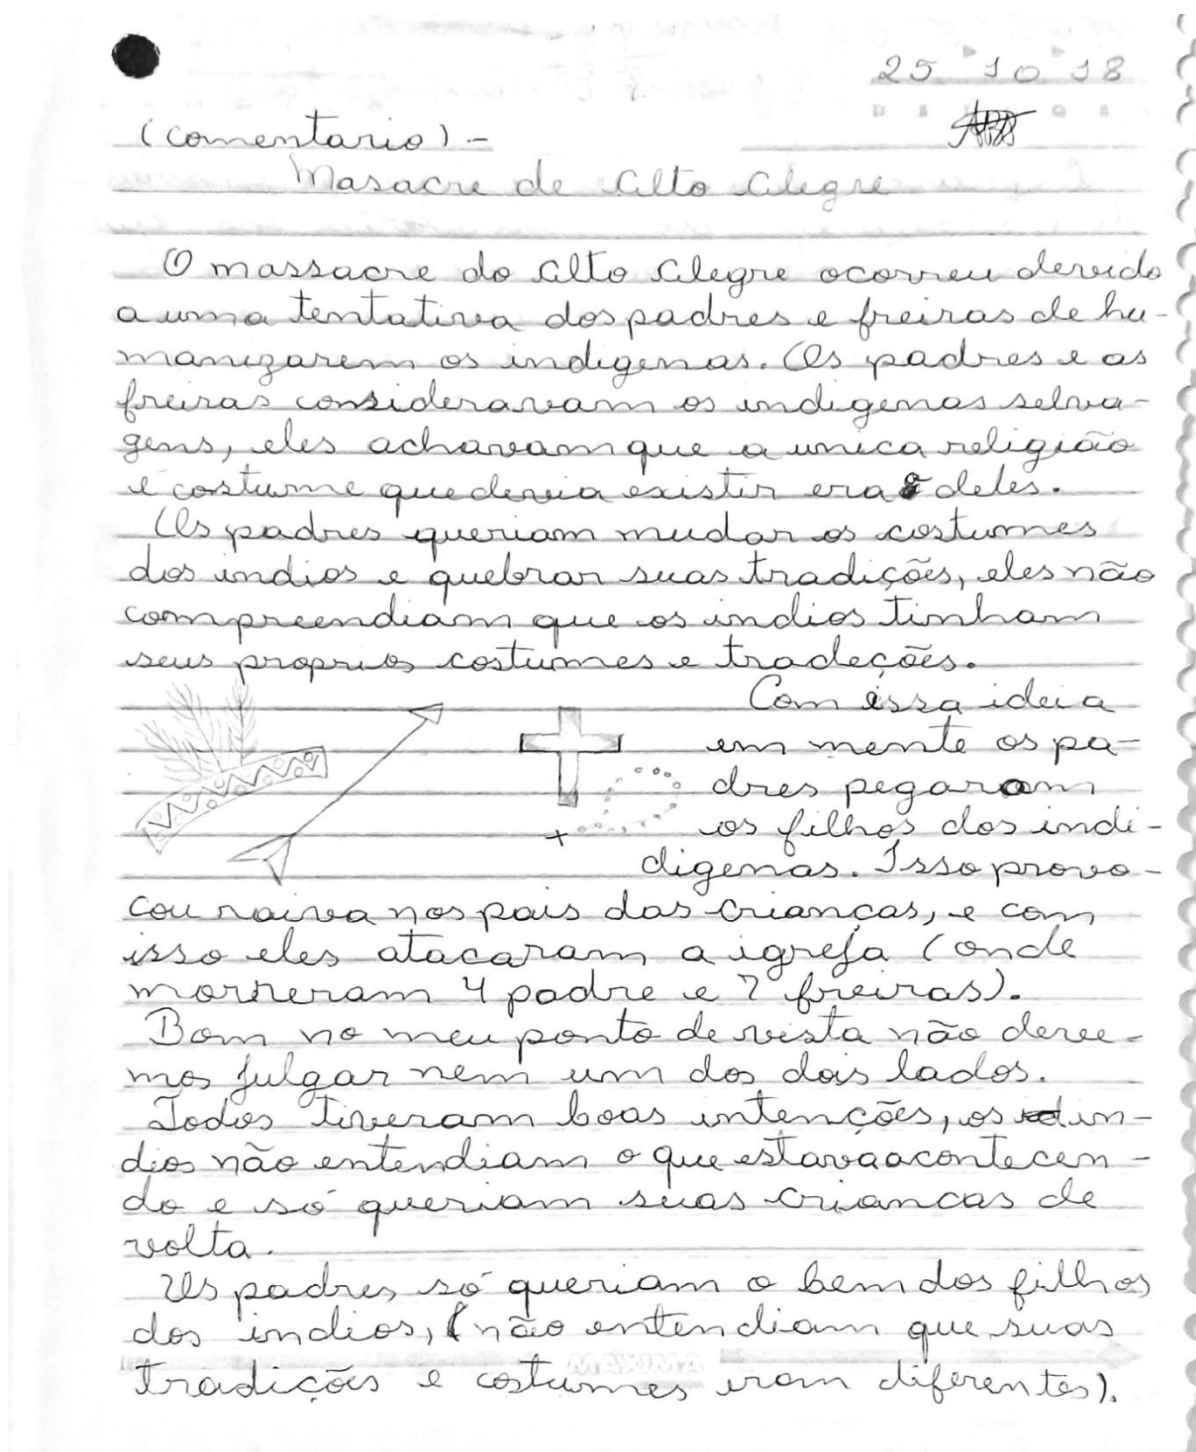 25 10 18
(comentario) -
Masacre de Alto Alegre
O massacre do Alto Alegre ocorreu devido
a uma tentativa dos padres e freiras de hu-
manizarem os indigenas. Os padres e as
freiras consideravam os indigenas selva-
gens, eles achavam que a unica religião
e costume que devia existir era o deles.
Os padres queriam mudar os costumes
dos indios e quebrar suas tradições, eles não
compreendiam que os indios tinham
seus proprios costumes e tradeções.
Com essa ideia
em mente os pa-
dres pegaram
os filhos dos indi-
digenas. Isso provo-
cou raiva nos pais das crianças, e com
isso eles atacaram a igreja (onde
morreram 4 padre e 7 freiras).
Bom no meu ponto de vista não deve-
mos julgar nem um dos dois lados.
Todos tiveram boas intenções, os in-
dios não entendiam o que estava acontecen-
do e só queriam suas criancas de
volta.
Os padres só queriam o bem dos filhos
dos indios, (não entendiam que suas
MAXIMA
tradições e costumes eram diferentes).